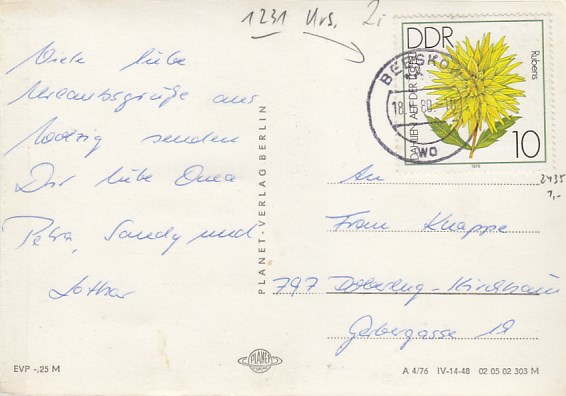 1231 Urs. 2,
DDR
Rubens
DAHLIEN AUF DER
10
1979
BEESKOW
18. 80.-10
wo
2435
1,-
Viele liebe
Urlaubsgrüße aus
senden
Dir liebe Oma
Petra, Sandy und
Lothar
PLANET-VERLAG BERLIN
An
Frau Knappe
797 Doberlug-Kirchhain
Gerbergasse 19
EVP -,25 M
PLANET
A 4/76 IV-14-48 02 05 02 303 M